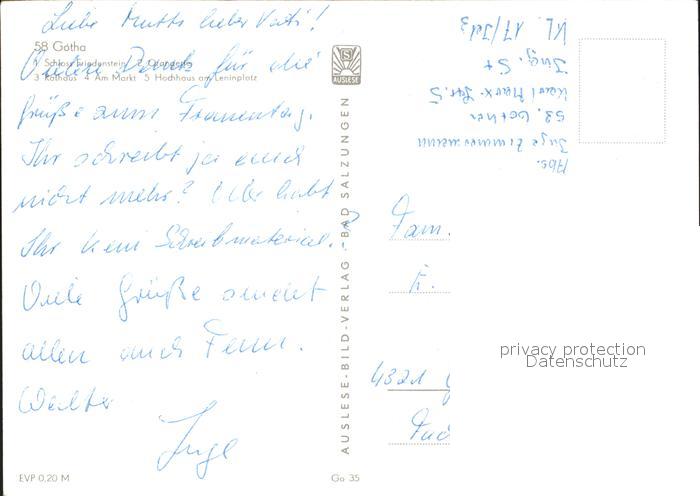 Liebe Mutti lieber Vati!
58 Gotha
1 Schloss Friedenstein 2 Orangerie
3 Rathaus 4 Am Markt 5 Hochhaus am Leninplatz
Vielen Dank für die
Grüße zum Frauentag.
Ihr schreibt ja auch
nicht mehr? Oder habt
Ihr kein Schreibmaterial.?
Viele Grüße sendet
allen auch Fam.
Walter
Inge
EVP 0,20 M
Go 35
AUSLESE
AUSLESE-BILD-VERLAG BAD SALZUNGEN
Abs.
Inge Zimmermann
58. Gotha
Karl Marx-Str. 5
Ing. St
Kl. 17/
Fam.
K.
4321
privacy protection
Datenschutz